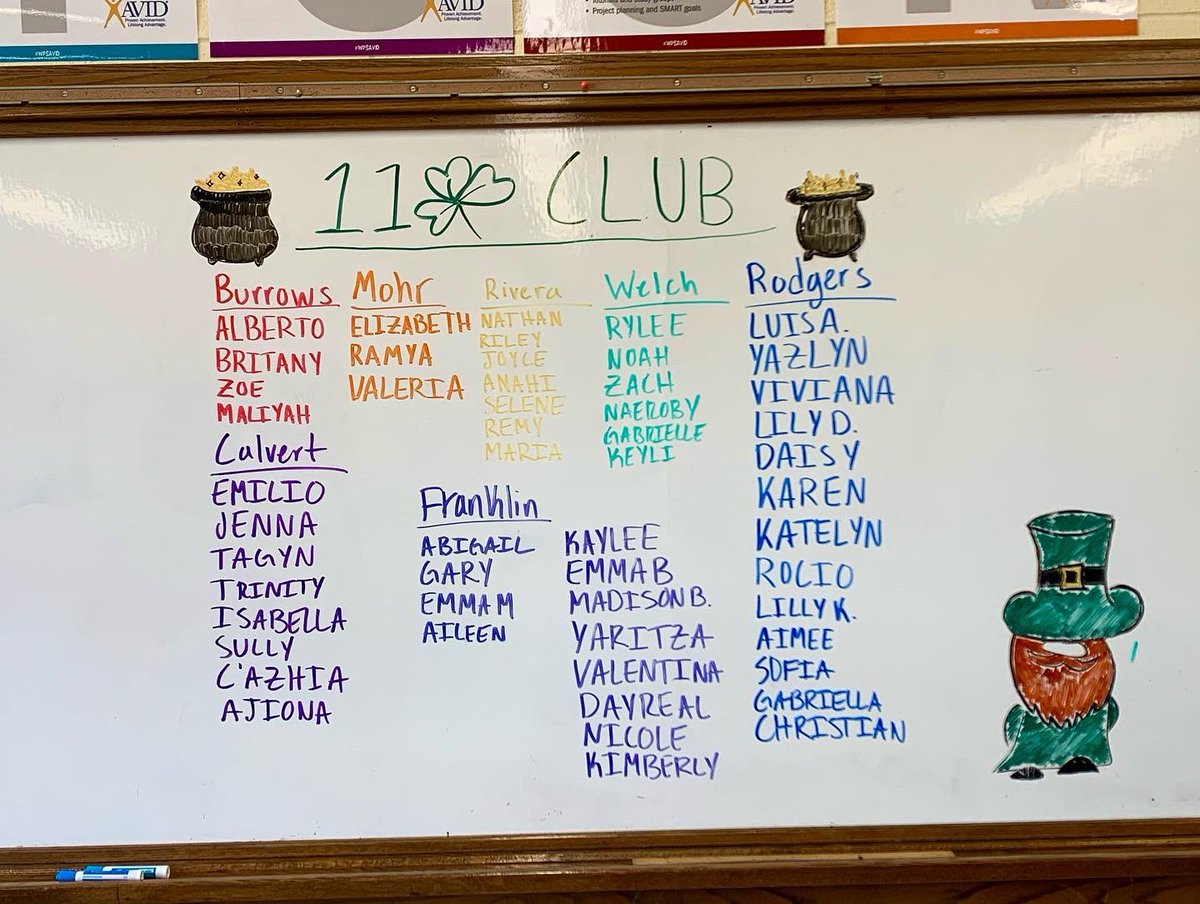 AVID
Proven Achievement.
Lifelong Advantage.
#WPSAVID
AVID
Proven Achievement.
Lifelong Advantage.
#WPSAVID
• Project planning and SMART goals
AVID
Proven Achievement.
Lifelong Advantage.
#WPSAVID
AVID
Proven Achievement.
Lifelong Advantage.
#WPSAVID
11 CLUB
Burrows
ALBERTO
BRITANY
ZOE
MALIYAH
Calvert
EMILIO
JENNA
TAGYN
TRINITY
ISABELLA
SULLY
C'AZHIA
AJIONA
Mohr
ELIZABETH
RAMYA
VALERIA
Rivera
NATHAN
RILEY
JOYCE
ANAHI
SELENE
REMY
MARIA
Welch
RYLEE
NOAH
ZACH
NAEROBY
GABRIELLE
KEYLI
Franklin
ABIGAIL
GARY
EMMA M
AILEEN
KAYLEE
EMMA B
MADISON B.
YARITZA
VALENTINA
DAYREAL
NICOLE
KIMBERLY
Rodgers
LUIS A.
YAZLYN
VIVIANA
LILY D.
DAISY
KAREN
KATELYN
ROCIO
LILLY K.
AIMEE
SOFIA
GABRIELLA
CHRISTIAN